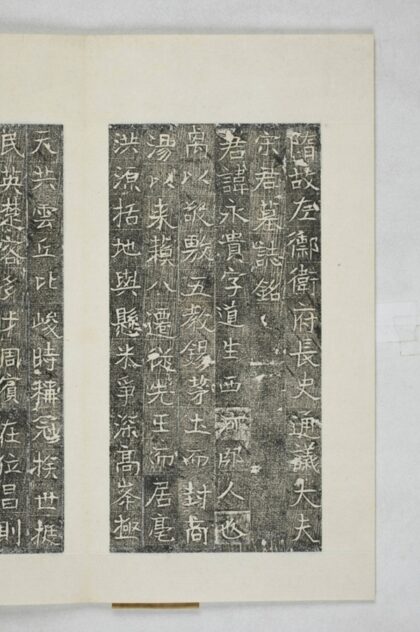 隋故左禦衛府長史通議大夫
宋君墓誌銘
君諱永貴字道生西河郡人也
禼以敬敷五教錫茅土而封商
湯以来頻八遷從先王而居亳
洪源括地與懸米爭深高峯極
天共雲丘比峻時稱冠族世挺
民英楚客多才周賓在位昌則